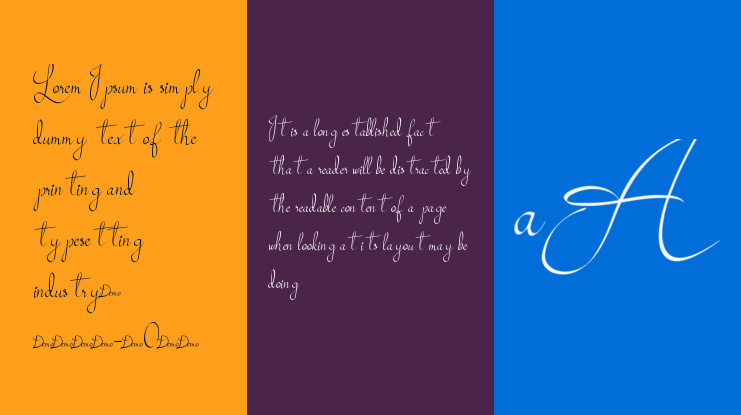 Lorem Ipsum is simply
dummy text of the
printing and
typesetting
industryDemo
DemoDemoDemoDemo-Demo0DemoDemo
It is a long established fact
that a reader will be distracted by
the readable content of a page
when looking at its layout may be
doing
aA